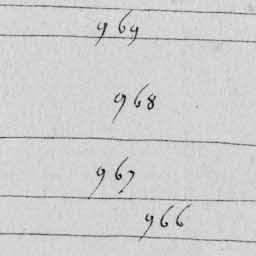 969
968
967
966